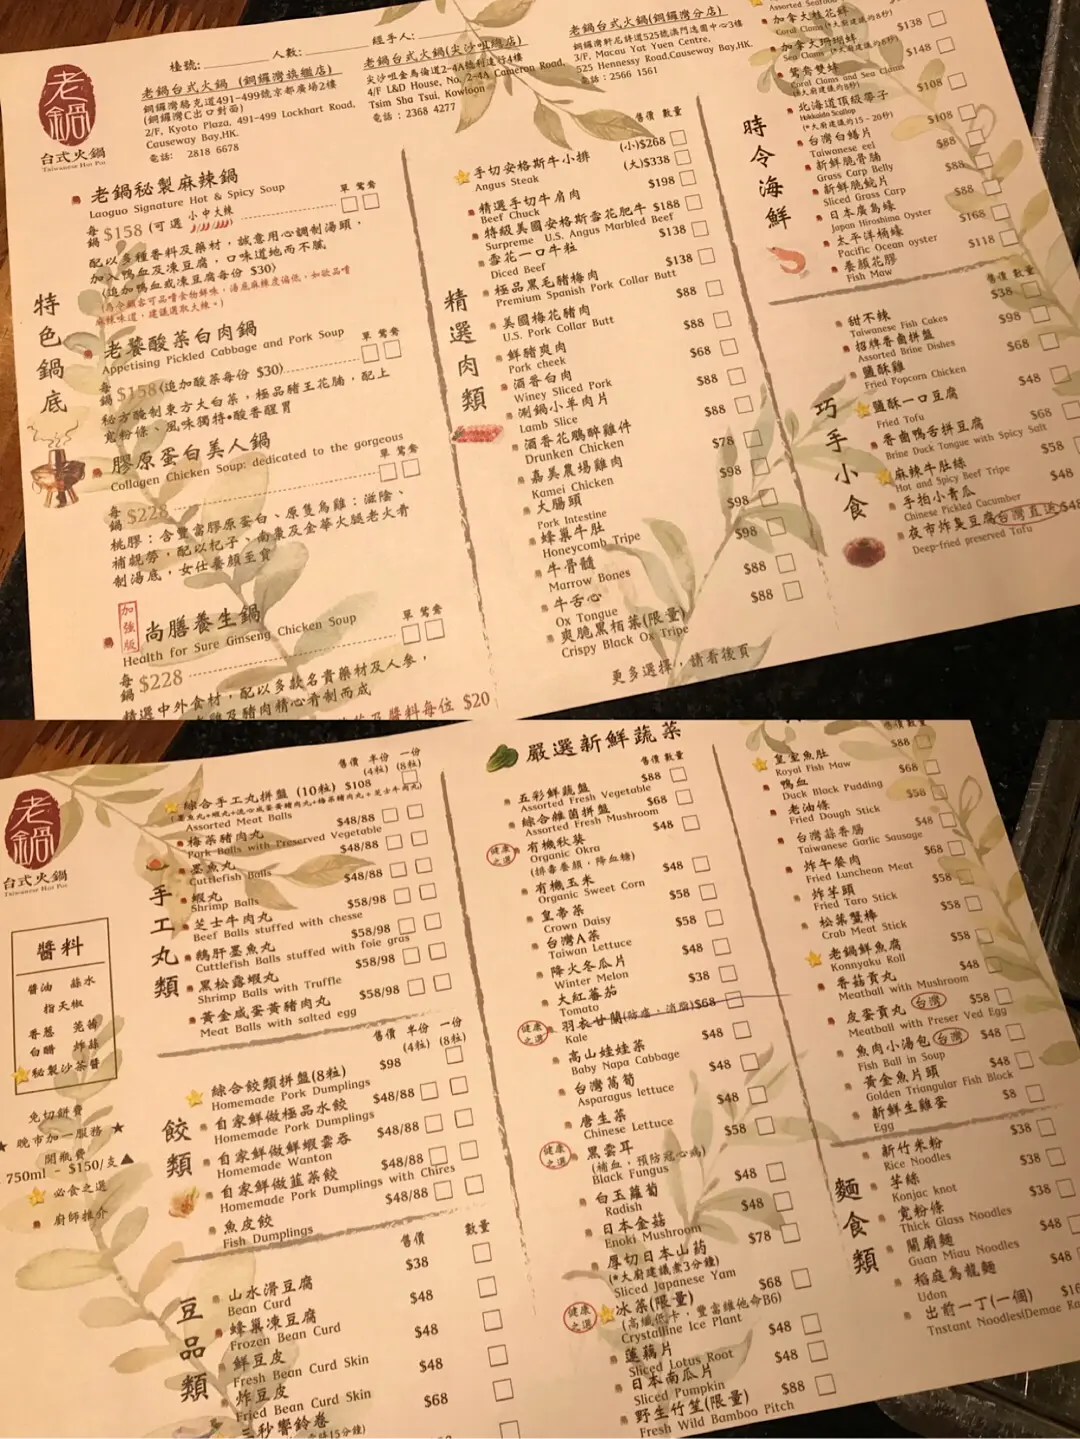 檯號:
人數:
經手人:
老鍋
台式火鍋
Taiwanese Hot Pot
老鍋台式火鍋 (銅鑼灣旗艦店)
銅鑼灣駱克道491-499號京都廣場2樓
(銅鑼灣C出口對面)
2/F, Kyoto Plaza, 491-499 Lockhart Road,
Causeway Bay,HK.
電話: 2818 6678
老鍋台式火鍋(尖沙咀總店)
尖沙咀金馬倫道2-4A德利道行4樓
4/F L&D House, No. 2-4A Cameron Road,
Tsim Sha Tsui, Kowloon
電話 : 2368 4277
老鍋台式火鍋(銅鑼灣分店)
銅鑼灣軒尼詩道525號澳門逸園中心3樓
3/F, Macau Yat Yuen Centre,
525 Hennessy Road,Causeway Bay,HK.
電話 : 2566 1561
特色鍋底
老鍋秘製麻辣鍋
Laoguo Signature Hot & Spicy Soup
單 鴛鴦
每鍋 $158 (可選 小中大辣
配以多種香料及藥材,誠意用心調制湯頭,
加入鴨血及凍豆腐,口味道地而不膩
(追加鴨血或凍豆腐每份 $30)
老饕酸菜白肉鍋
Appetising Pickled Cabbage and Pork Soup
單 鴛鴦
每鍋 $158(追加酸菜每份 $30)
秘方醃制東方大白菜,極品豬王花腩,配上
寬粉條、風味獨特•酸香醒胃
膠原蛋白美人鍋
Collagen Chicken Soup: dedicated to the gorgeous
單 鴛鴦
每鍋 $228
桃膠:含豐富膠原蛋白、原隻烏雞:滋陰、
補虧勞,配以杞子、南棗及金華火腿老火膏
制湯底,女仕養顏至寶
加強版
尚膳養生鍋
Health for Sure Ginseng Chicken Soup
單 鴛鴦
每鍋 $228
精選中外食材,配以多款名貴藥材及人參,
及醬料每位 $20
精選肉類
售價 數量
手切安格斯牛小排 (小)$268
Angus Steak (大)$338
精選手切牛肩肉 $198
Beef Chuck
特級美國安格斯雪花肥牛 $188
Surpreme U.S. Angus Marbled Beef
雪花一口牛粒 $138
Diced Beef
極品黑毛豬梅肉 $138
Premium Spanish Pork Collar Butt
美國梅花豬肉 $88
U.S. Pork Collar Butt
鮮豬爽肉 $88
Pork cheek
酒香白肉 $68
Winey Sliced Pork
涮鍋小羊肉片 $88
Lamb Slice
酒香花鵰醉雞件 $88
Drunken Chicken
嘉美農場雞肉 $78
Kamei Chicken
大腸頭 $98
Pork Intestine
蜂巢牛肚 $98
Honeycomb Tripe
牛骨髓 $98
Marrow Bones
牛舌心 $88
Ox Tongue
爽脆黑栢葉(限量) $88
Crispy Black Ox Tripe
更多選擇,請看後頁
時令海鮮
Assorted Seafood
加拿大桂花蚌 $138
Coral Clams (*大廚建議約8秒)
加拿大珊瑚蚌 $148
Sea Clams (*大廚建議約6秒)
鴛鴦雙蚌 $108
Coral Clams and Sea Clams
(*大廚建議約8秒)
北海道頂級帶子 $108
Hokkaido Scallop
(*大廚建議約15-20秒)
台灣白鱔片 $88
Taiwanese eel
新鮮脆骨腩 $88
Grass Carp Belly
新鮮脆鯇片 $88
Sliced Grass Carp
日本廣島蠔 $168
Japan Hiroshima Oyster
太平洋桶蠔 $118
Pacific Ocean oyster
養顏花膠
Fish Maw
巧手小食
售價 數量
甜不辣 $38
Taiwanese Fish Cakes
招牌香鹵拼盤 $98
Assorted Brine Dishes
鹽酥雞 $68
Fried Popcorn Chicken
鹽酥一口豆腐 $48
Fried Tofu
香鹵鴨舌拼豆腐 $68
Brine Duck Tongue with Spicy Salt
麻辣牛肚絲 $58
Hot and Spicy Beef Tripe
手拍小青瓜 $48
Chinese Pickled Cucumber
夜市炸臭豆腐 台灣直送 $48
Deep-fried preserved Tofu
老鍋
台式火鍋
Taiwanese Hot Pot
醬料
醬油 蒜水
指天椒
香蔥 芫茜
白醋 炸蒜
秘製沙茶醬
免切餅費
★ 晚市加一服務 ★
開瓶費
750ml - $150/支▲
必食之選
廚師推介
手工丸類
售價 半份 一份
(4粒) (8粒)
綜合手工丸拼盤 (10粒) $108
Assorted Meat Balls
梅菜豬肉丸 $48/88
Pork Balls with Preserved Vegetable
墨魚丸 $48/88
Cuttlefish Balls
蝦丸 $48/88
Shrimp Balls
芝士牛肉丸 $58/98
Beef Balls stuffed with chesse
鵝肝墨魚丸 $58/98
Cuttlefish Balls stuffed with foie gras
黑松露蝦丸 $58/98
Shrimp Balls with Truffle
黃金咸蛋黃豬肉丸 $58/98
Meat Balls with salted egg
餃類
售價 半份 一份
(4粒) (8粒)
綜合餃類拼盤(8粒) $98
Homemade Pork Dumplings
自家鮮做極品水餃 $48/88
Homemade Pork Dumplings
自家鮮做鮮蝦雲吞 $48/88
Homemade Wanton
自家鮮做韮菜餃 $48/88
Homemade Pork Dumplings with Chires
魚皮餃 $48/88
Fish Dumplings
豆品類
售價 數量
山水滑豆腐 $38
Bean Curd
蜂巢凍豆腐 $48
Frozen Bean Curd
鮮豆皮 $48
Fresh Bean Curd Skin
炸豆皮 $48
Fried Bean Curd Skin
三秒響鈴卷 $68
嚴選新鮮蔬菜
售價 數量
五彩鮮蔬盤 $88
Assorted Fresh Vegetable
綜合雜菌拼盤 $68
Assorted Fresh Mushroom
健康之選
有機秋葵 $48
Organic Okra
(排毒養顏,降血糖)
有機玉米 $48
Organic Sweet Corn
皇帝菜 $58
Crown Daisy
台灣A菜 $58
Taiwan Lettuce
降火冬瓜片 $48
Winter Melon
大紅蕃茄 $38
Tomato
健康之選
羽衣甘蘭(防癌,消脂) $68
Kale
高山娃娃菜 $48
Baby Napa Cabbage
台灣萵筍 $48
Asparagus lettuce
唐生菜 $48
Chinese Lettuce
健康之選
黑雲耳 $58
(補血,預防冠心病)
Black Fungus
白玉蘿蔔 $48
Radish
日本金菇 $48
Enoki Mushroom
厚切日本山药 $78
(*大廚建議煮3分鐘)
Sliced Japanese Yam
健康之選
冰菜(限量) $68
(高纖低卡,豐富維他命B6)
Crystalline Ice Plant
蓮藕片 $48
Sliced Lotus Root
日本南瓜片 $48
Sliced Pumpkin
野生竹笙(限量) $88
Fresh Wild Bamboo Pitch
售價 數量
皇室魚肚 $88
Royal Fish Maw
鴨血 $68
Duck Block Pudding
老油條 $58
Fried Dough Stick
台灣蒜香腸 $48
Taiwanese Garlic Sausage
炸午餐肉 $68
Fried Luncheon Meat
炸芋頭 $58
Fried Taro Stick
松葉蟹棒
Crab Meat Stick
老鍋鮮魚腐 $58
Konnyaku Roll
香菇貢丸 $48
Meatball with Mushroom
皮蛋貢丸 台灣 $58
Meatball with Preser Ved Egg
魚肉小湯包 台灣 $48
Fish Ball in Soup
黃金魚片頭 $48
Golden Triangular Fish Block
新鮮生雞蛋 $8
Egg
麵食類
新竹米粉 $38
Rice Noodles
芋絲 $38
Konjac knot
寬粉條 $38
Thick Glass Noodles
關廟麵 $48
Guan Miau Noodles
稻庭烏龍麵 $48
Udon
出前一丁(一個)
Tnstant Noodles(Demae Ra